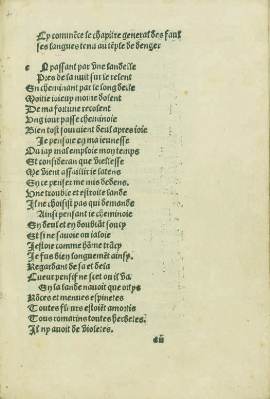 Cy commẽce le chapitre general des faul
ses langues tenu au tẽple de dangier
e N passant par vne landelle
Pres de la nuit sur le relent
En cheminant par le long delle
Moitie ioieux moitie dolent
De ma fortune recolent
Ung iour passe cheminoie
Bien tost souuient deul apres ioie
Je pensoie en ma ieunesse
Ou iay mal emploie mon temps
Et consideray que viellesse
Me vient assaillir ie latens
En ce penser me mis dedens
Vne trouble et estroite lande
Il ne choisist pas qui demande
Ainsi pensant ie cheminoie
En deul et en doubtãt soucy
Et si ne sauoie ou ialoie
Jestoie comme hõme trãsy
Je fus bien longuemẽt ainsy
Regardant de sa et de la
Cueur pensif ne scet ou il va
En la lande nauoit que
Rõces et menues espinetes
Toutes fleurs estoiẽt amortis
Tous romarins toutes herbetes
Il ny auoit de violetes